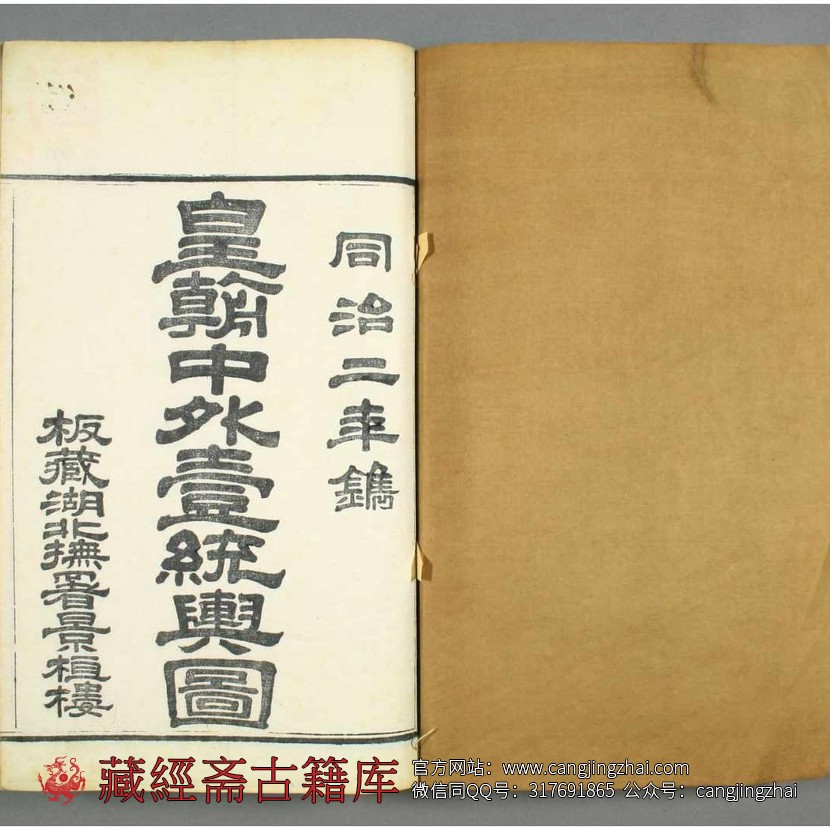 同治二年鐫
皇朝中外壹統輿圖
板藏湖北撫署景桓樓
藏經斋古籍库
官方网站：www.cangjingzhai.com
微信同QQ号：317691865 公众号：cangjingzhai